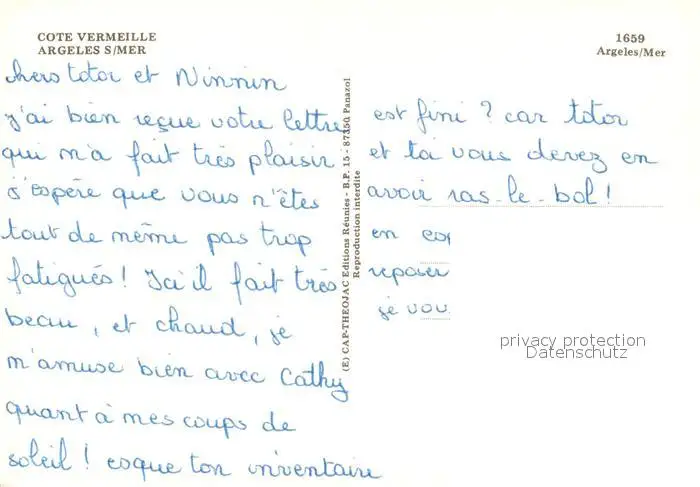 COTE VERMEILLE
ARGELES S/MER
1659
Argeles/Mer
chers totor et Ninnin
j'ai bien reçue votre lettre
qui m'a fait très plaisir
J'espère que vous n'êtes
tout de même pas trop
fatigués ! Ici il fait très
beau, et chaud, je
m'amuse bien avec Cathy
quant à mes coups de
soleil ! esque ton inventaire
(E) CAP-THEOJAC Editions Réunies - B.P. 15 - 87350 Panazol
Reproduction interdite
est fini ? car totor
et toi vous devez en
avoir ras-le-bol !
en
reposer
je vou
privacy protection
Datenschutz